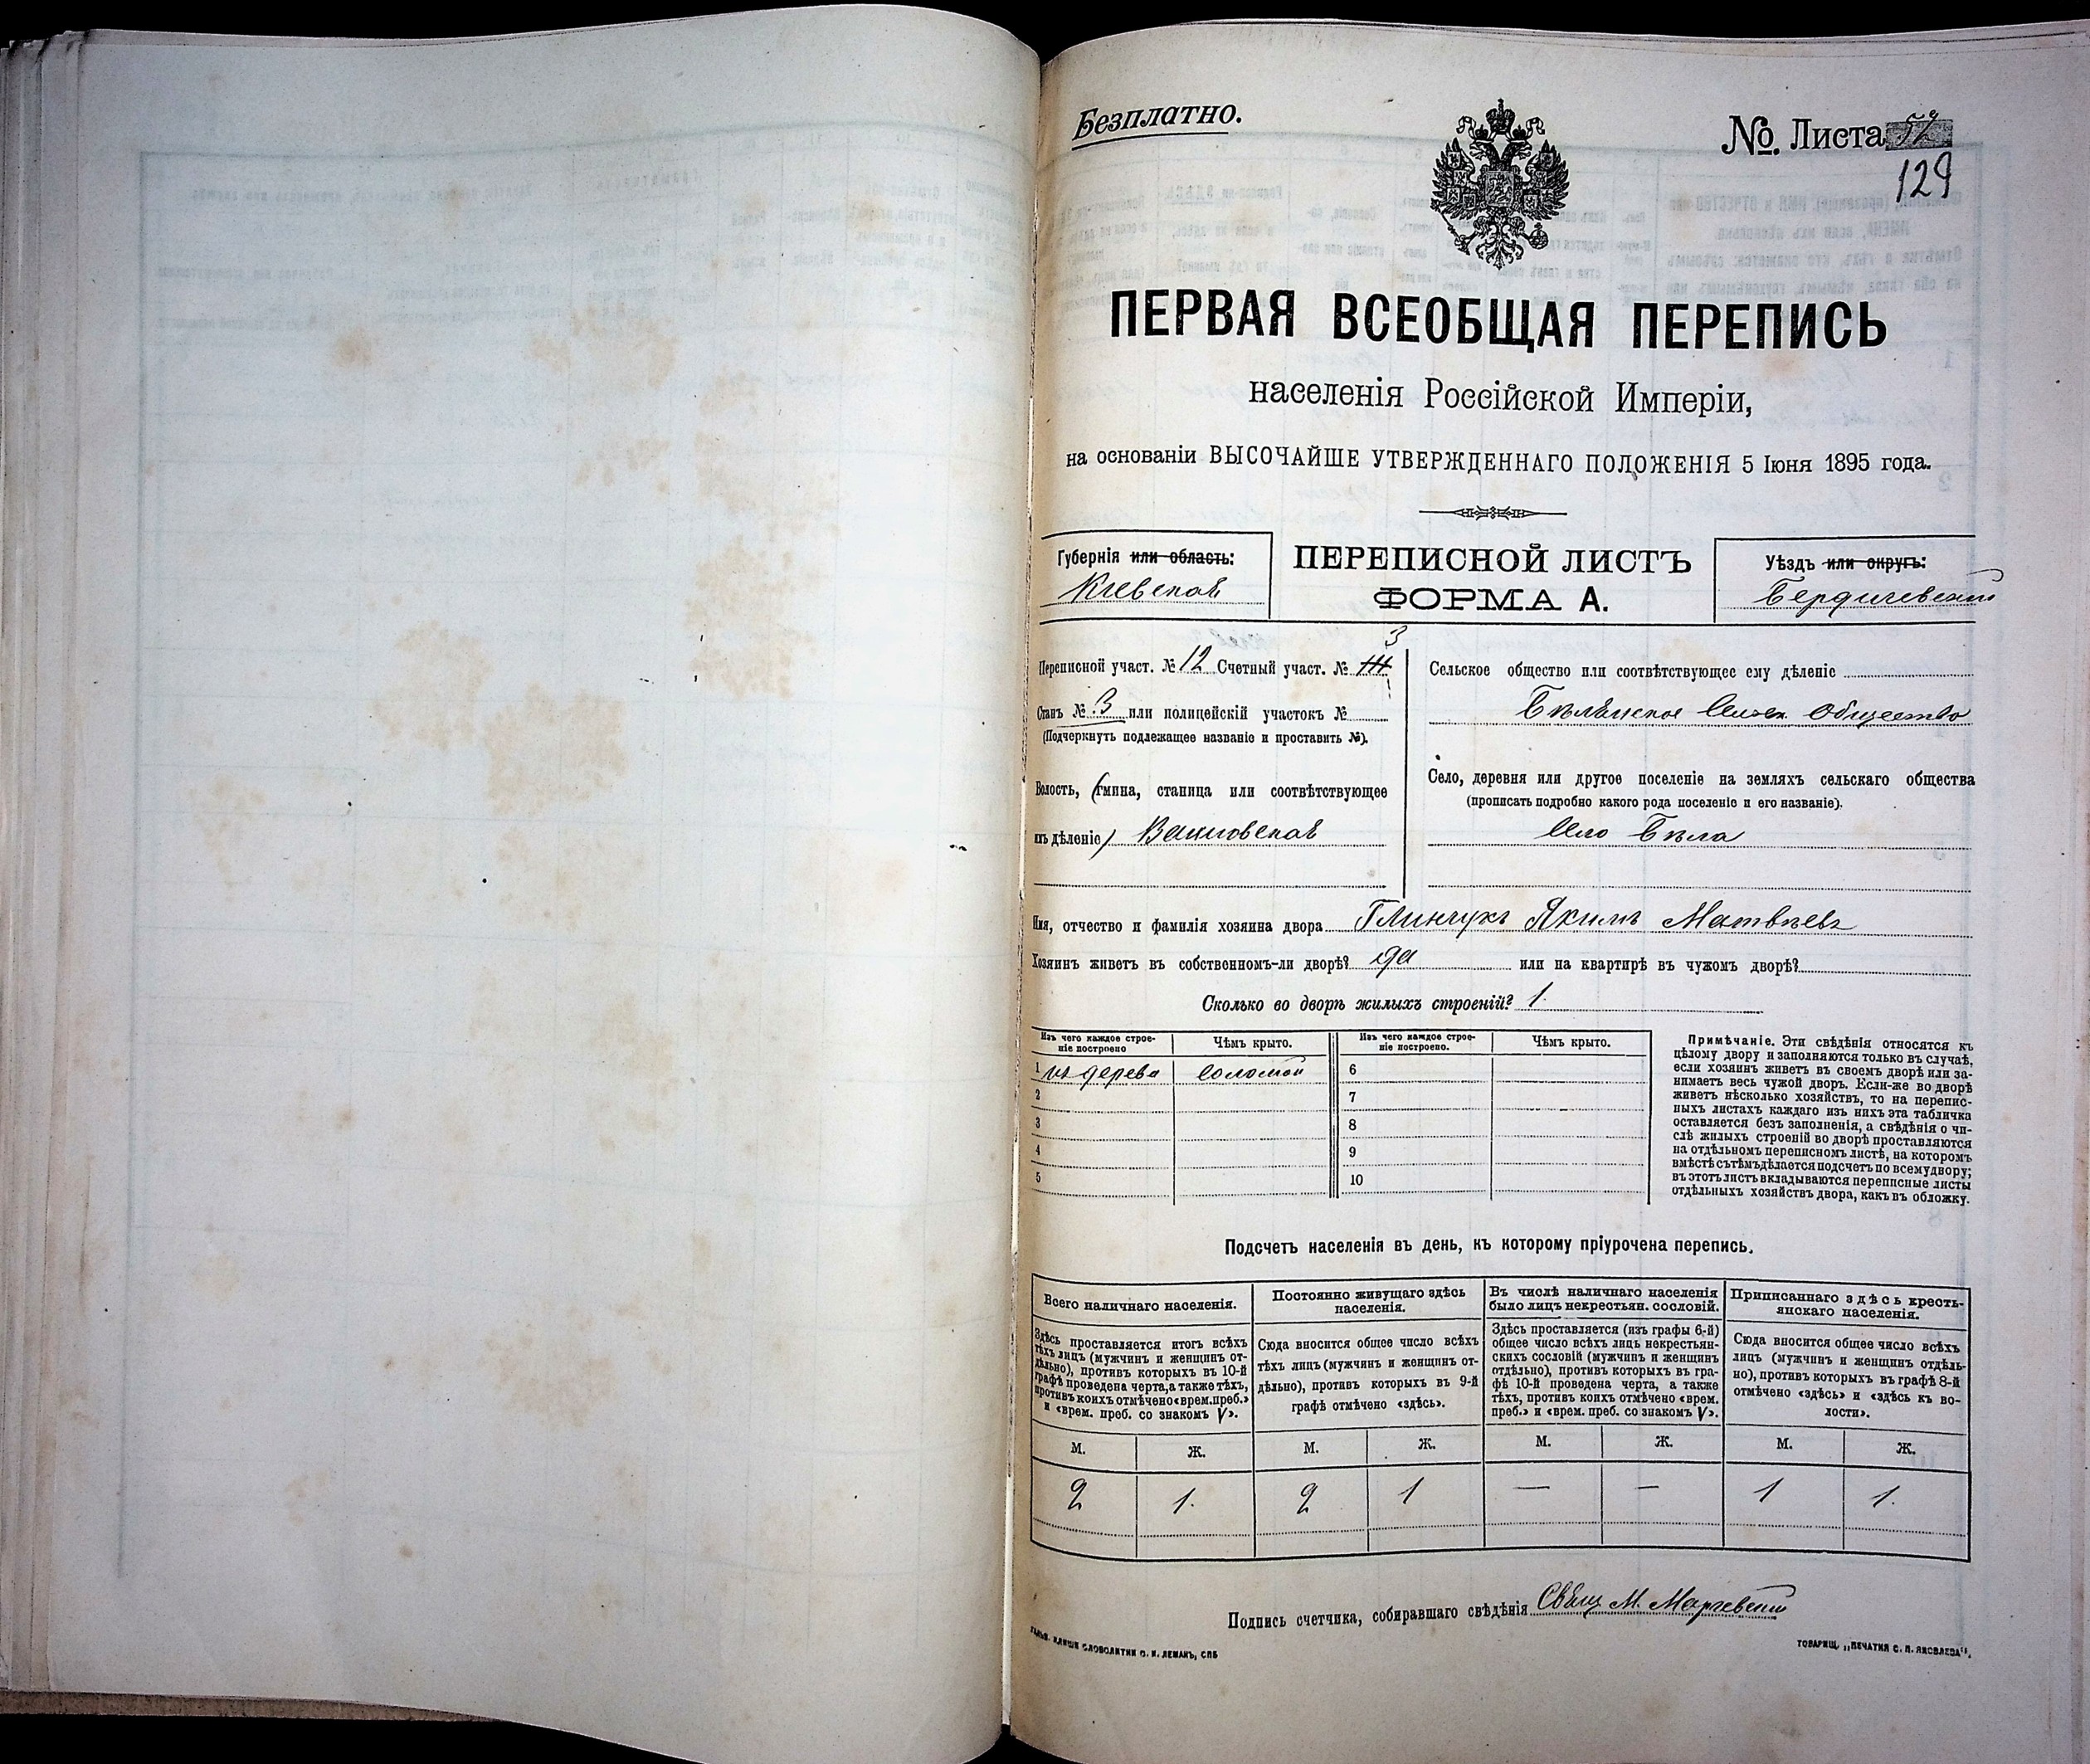 Безплатно.
№. Листа 52
129
ПЕРВАЯ ВСЕОБЩАЯ ПЕРЕПИСЬ
населенія Россійской Имперіи,
на основаніи ВЫСОЧАЙШЕ УТВЕРЖДЕННАГО ПОЛОЖЕНІЯ 5 Іюня 1895 года.
Губернія или область:
Кіевской
ПЕРЕПИСНОЙ ЛИСТЪ
ФОРМА А.
Уѣздъ или округъ:
Бердичевскій
3
Переписной участ. № 12 Счетный участ. № III
Станъ № 3 или полицейскій участокъ №
(Подчеркнуть подлежащее названіе и проставить №).
Волость, (гмина, станица или соотвѣтствующее
имъ дѣленіе) Вахновской
Сельское общество или соотвѣтствующее ему дѣленіе
Бѣлянское Сельск Общество
Село, деревня или другое поселеніе на земляхъ сельскаго общества
(прописать подробно какого рода поселеніе и его названіе).
Село Бѣла
Имя, отчество и фамилія хозяина двора Глинчукъ Якимъ Матвѣевъ
Хозяинъ живетъ въ собственномъ-ли дворѣ? да или на квартирѣ въ чужомъ дворѣ?
Сколько во дворѣ жилыхъ строеній? 1.
Изъ чего каждое строе-
ніе построено
Чѣмъ крыто.
Изъ чего каждое строе-
ніе построено.
Чѣмъ крыто.
1 изъ дерева соломой 6
2 7
3 8
4 9
5 10
Примѣчаніе. Эти свѣдѣнія относятся къ
цѣлому двору и заполняются только въ случаѣ,
если хозяинъ живетъ въ своемъ дворѣ или за-
нимаетъ весь чужой дворъ. Если-же во дворѣ
живетъ нѣсколько хозяйствъ, то на перепис-
ныхъ листахъ каждаго изъ нихъ эта табличка
оставляется безъ заполненія, а свѣдѣнія о чи-
слѣ жилыхъ строеній во дворѣ проставляются
на отдѣльномъ переписномъ листѣ, на которомъ
вмѣстѣ съ тѣмъ дѣлается подсчетъ по всему двору;
въ этотъ листъ вкладываются переписные листы
отдѣльныхъ хозяйствъ двора, какъ въ обложку.
Подсчетъ населенія въ день, къ которому пріурочена перепись.
Всего наличнаго населенія.
Здѣсь проставляется итогъ всѣхъ
тѣхъ лицъ (мужчинъ и женщинъ от-
дѣльно), противъ которыхъ въ 10-й
графѣ проведена черта, а также тѣхъ,
противъ коихъ отмѣчено «врем. преб.»
и «врем. преб. со знакомъ V».
Постоянно живущаго здѣсь
населенія.
Сюда вносится общее число всѣхъ
тѣхъ лицъ (мужчинъ и женщинъ от-
дѣльно), противъ которыхъ въ 9-й
графѣ отмѣчено «здѣсь».
Въ числѣ наличнаго населенія
было лицъ некрестьян. сословій.
Здѣсь проставляется (изъ графы 6-й)
общее число всѣхъ лицъ некрестьян-
скихъ сословій (мужчинъ и женщинъ
отдѣльно), противъ которыхъ въ гра-
фѣ 10-й проведена черта, а также
тѣхъ, противъ коихъ отмѣчено «врем.
преб.» и «врем. преб. со знакомъ V».
Приписаннаго здѣсь кресть-
янскаго населенія.
Сюда вносится общее число всѣхъ
лицъ (мужчинъ и женщинъ отдѣль-
но), противъ которыхъ въ графѣ 8-й
отмѣчено «здѣсь» и «здѣсь къ во-
лости».
М. Ж. М. Ж. М. Ж. М. Ж.
2 1. 2 1 — — 1 1.
Подпись счетчика, собиравшаго свѣдѣнія Свящ М.
КЛИШЕ СЛОВОЛИТНИ О. И. ЛЕМАНЪ, СПБ
ТОВАРИЩ. „ПЕЧАТНЯ С. П. ЯКОВЛЕВА“.